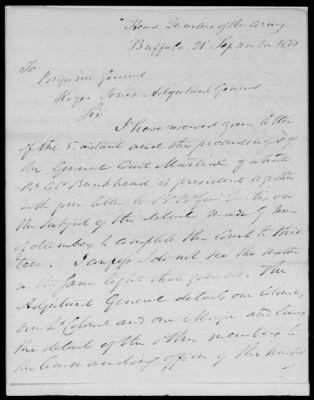 Head Quarters of the Army
Buffalo 21 September
To
Brigadier General
Roger Jones Adjutant General
Sir
I have received your letter
of the 8 instant and the proceedings of
the General Court Martial of which
Bt Col Bankhead is president together
with your letter to
on
the subject of the detail made of
of members to complete the Court to thir
teen. I do not see the matter
in the same light that you do. The
Adjutant General details one Colonel,
one Lt Colonel and one Major and leaves
the detail of the other members to
the Commanding officer of the